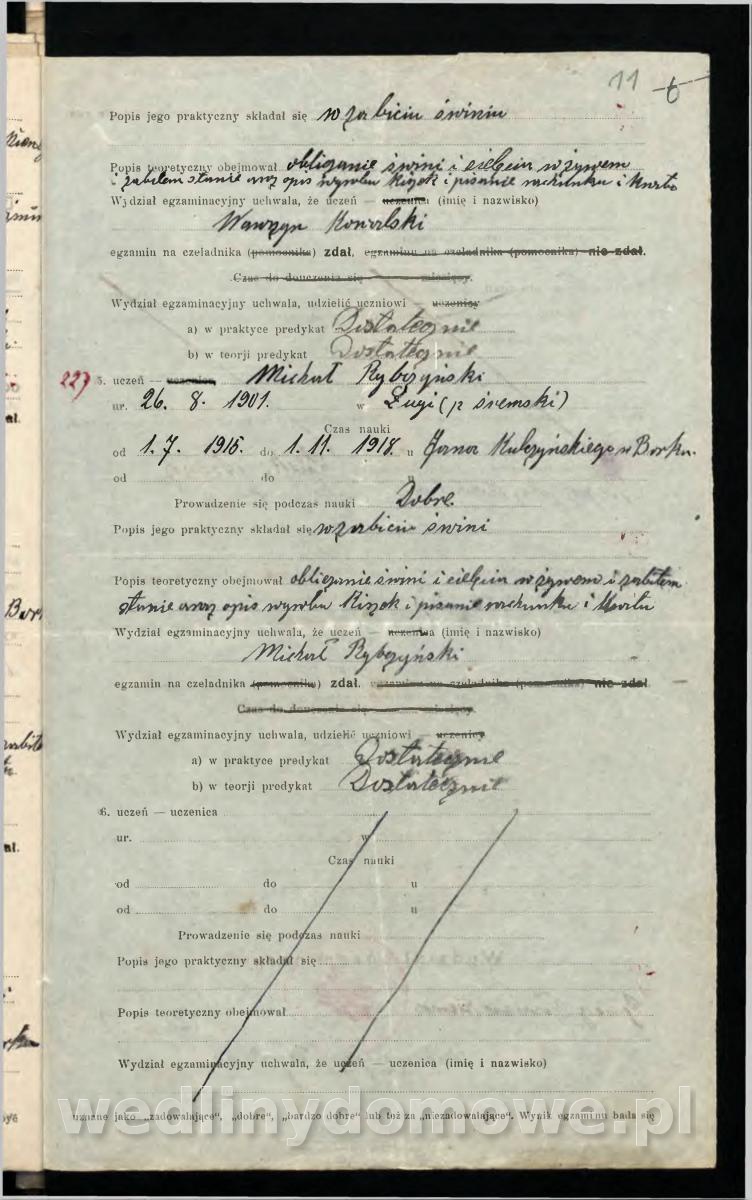 11 6
Popis jego praktyczny składał się w zabiciu świniu
Popis teoretyczny obejmował obliczanie świni i cielęcia w żywem
i zabitem stanie oraz opis wyrobu kiszek i pisanie rachunku i kwitu
Wydział egzaminacyjny uchwala, że uczeń — uczenica (imię i nazwisko)
Wawrzyn Kowalski
egzamin na czeladnika (pomocnika) zdał, egzaminu na czeladnika (pomocnika) nie zdał.
Czas do douczenia się miesięcy.
Wydział egzaminacyjny uchwala, udzielić uczniowi — uczenicy
a) w praktyce predykat Dostatecznie
b) w teorji predykat Dostatecznie
227 5. uczeń — uczenica Michał Rybczyński
ur. 26. 8. 1901. w Ługi (p śremski)
Czas nauki
od 1. 7. 1915. do 1. 11. 1918. u Jana Kulczyńskiego w Borku.
od do u
Prowadzenie się podczas nauki Dobre.
Popis jego praktyczny składał się w zabiciu świni
Popis teoretyczny obejmował obliczanie świni i cielęcia w żywem i zabitem
stanie oraz opis wyrobu kiszek i pisanie rachunku i kwitu
Wydział egzaminacyjny uchwala, że uczeń — uczenica (imię i nazwisko)
Michał Rybczyński
egzamin na czeladnika (pomocnika) zdał, egzaminu na czeladnika (pomocnika) nie zdał
Czas do douczenia się miesięcy.
Wydział egzaminacyjny uchwala, udzielić uczniowi — uczenicy
a) w praktyce predykat Dostatecznie
b) w teorji predykat Dostatecznie
6. uczeń — uczenica
ur. w
Czas nauki
od do u
od do u
Prowadzenie się podczas nauki
Popis jego praktyczny składał się
Popis teoretyczny obejmował
Wydział egzaminacyjny uchwala, że uczeń — uczenica (imię i nazwisko)
uznane jako „zadowalające“, „dobre“, „bardzo dobre“ lub też za „niezadowalające“. Wynik egzaminu bada się
wedlinydomowe.pl